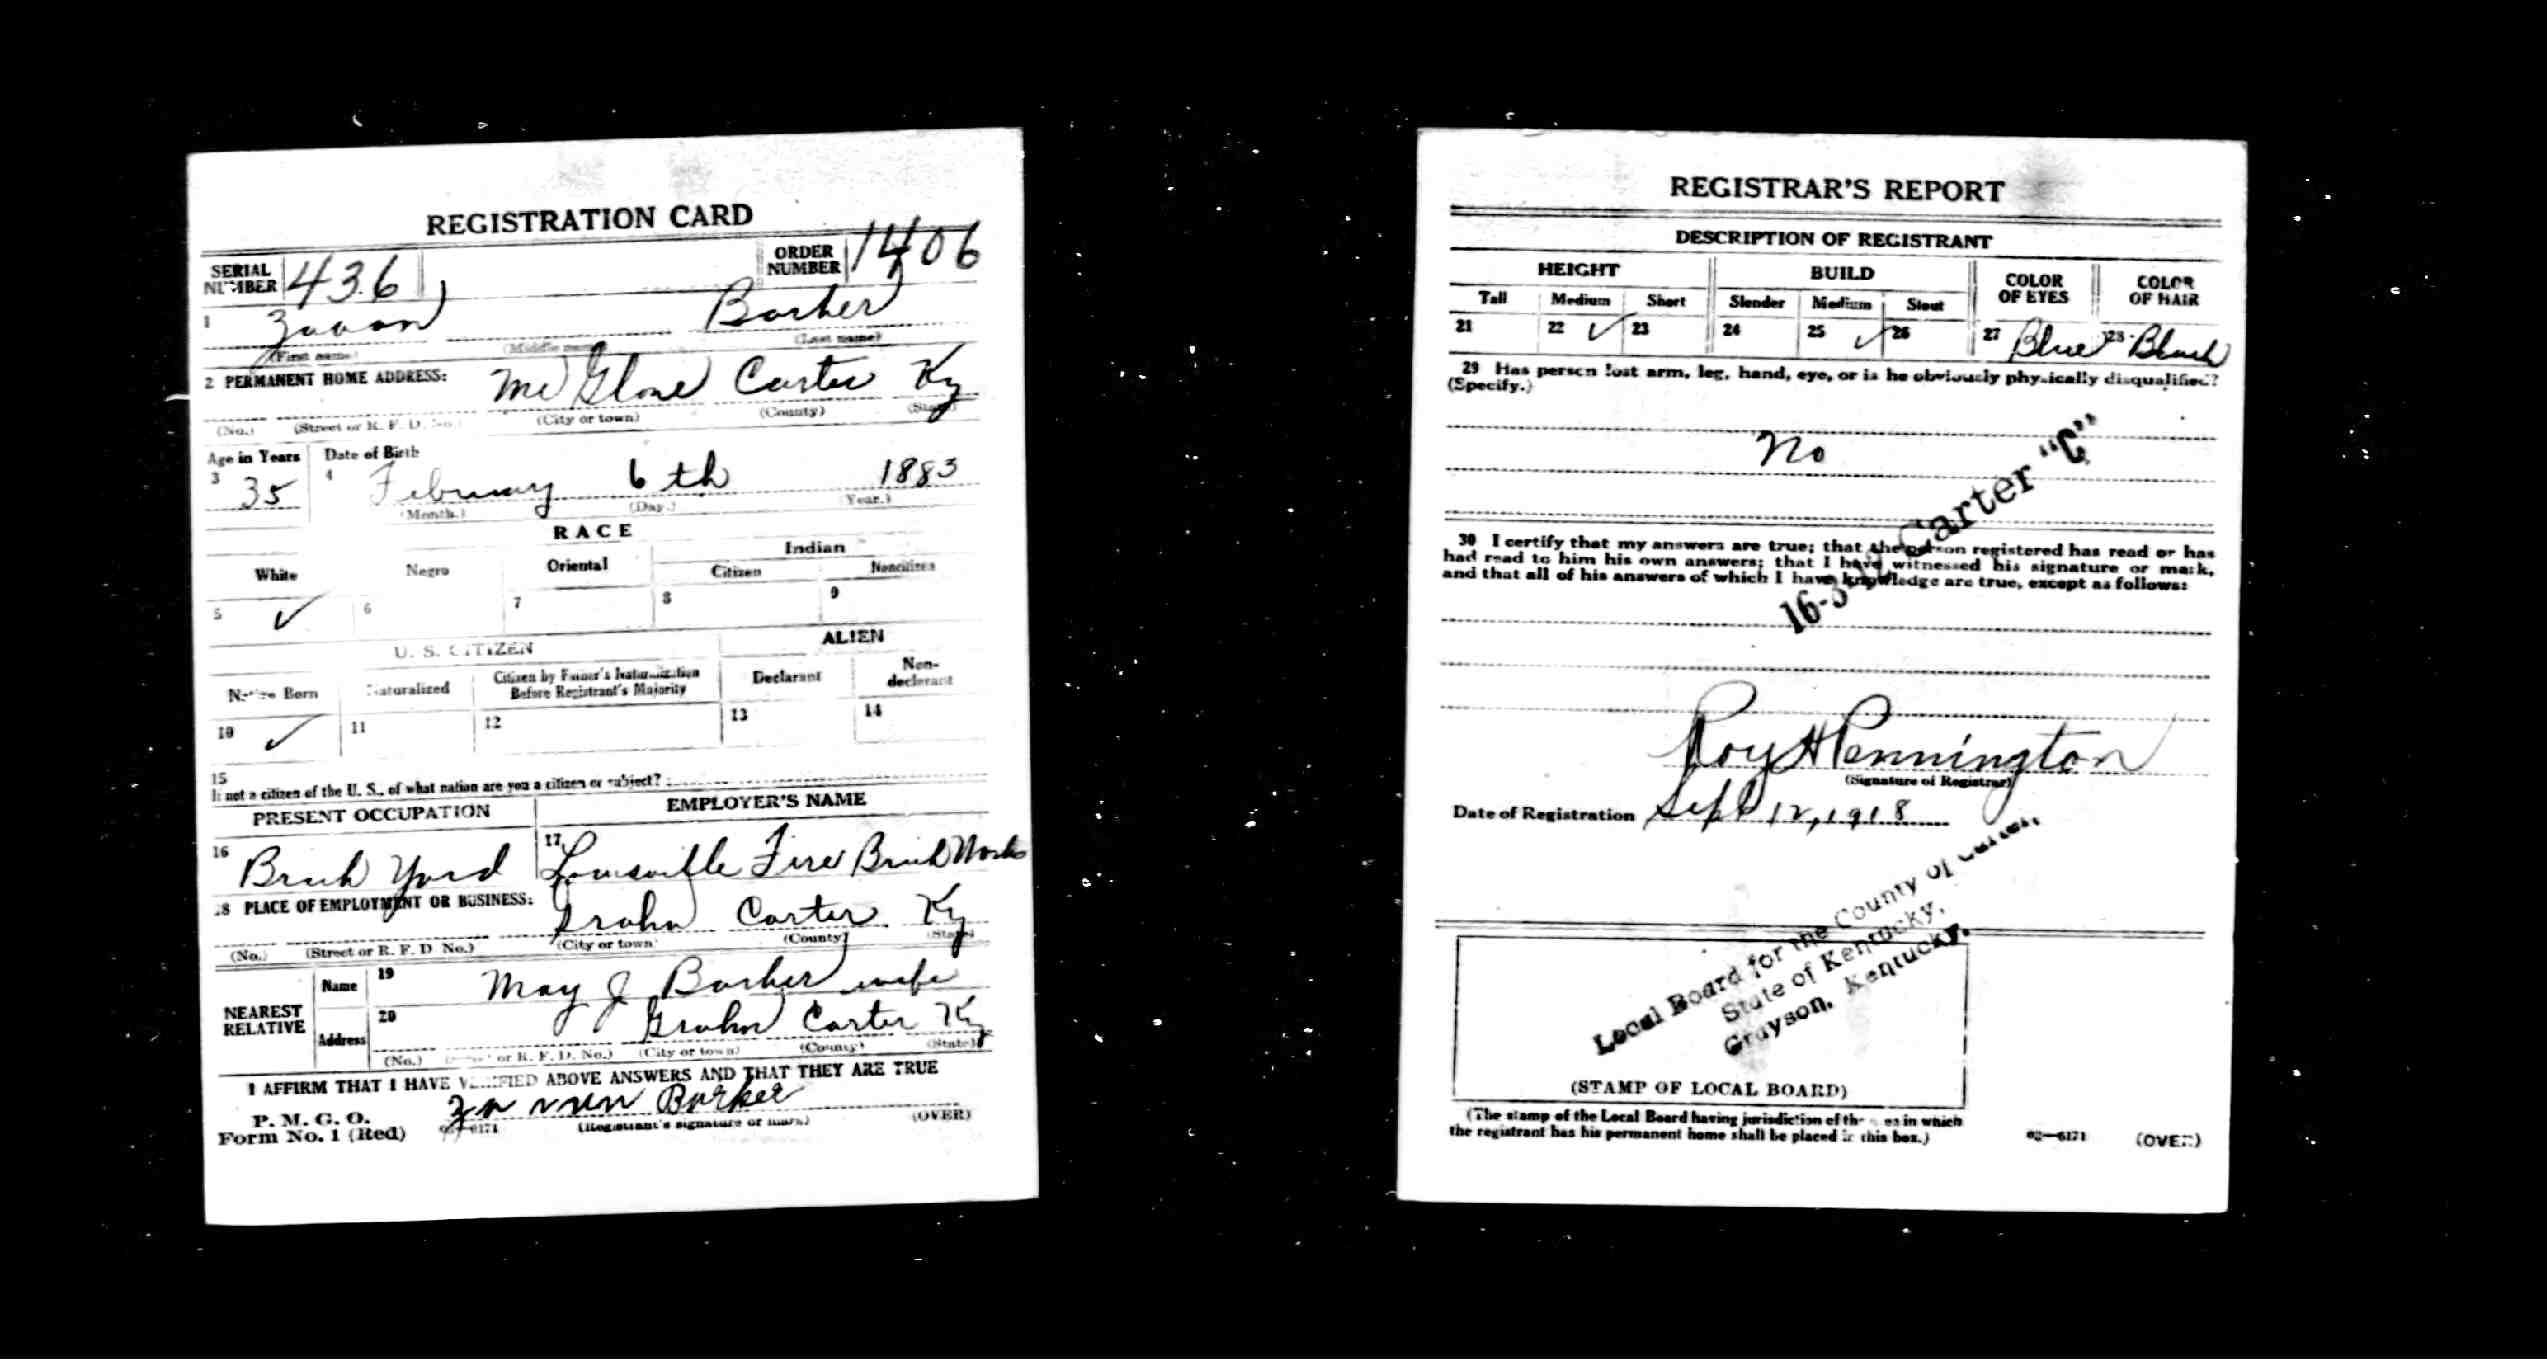 REGISTRATION CARD
SERIAL NUMBER 436
ORDER NUMBER 1406
1 Barker
(First name) (Middle name) (Last name)
2 PERMANENT HOME ADDRESS: Mc Glone Carter Ky
(No.) (Street or R. F. D. No.) (City or town) (County) (State)
Age in Years Date of Birth
3 35 4 February 6th 1883
(Month.) (Day.) (Year.)
RACE
White Negro Oriental Indian
Citizen Noncitizen
5 ✓ 6 7 8 9
U. S. CITIZEN ALIEN
Native Born Naturalized Citizen by Father's Naturalization Before Registrant's Majority Declarant Non-declarant
10 ✓ 11 12 13 14
15
If not a citizen of the U. S., of what nation are you a citizen or subject?
PRESENT OCCUPATION EMPLOYER'S NAME
16 Brick Yard 17 Louisville Fire Brick Works
18 PLACE OF EMPLOYMENT OR BUSINESS:
Grahn Carter Ky
(No.) (Street or R. F. D. No.) (City or town) (County) (State)
NEAREST RELATIVE
Name 19 May J Barker wife
Address 20 Grahn Carter Ky
(No.) (Street or R. F. D. No.) (City or town) (County) (State)
I AFFIRM THAT I HAVE VERIFIED ABOVE ANSWERS AND THAT THEY ARE TRUE
P. M. G. O.
Form No. 1 (Red) Barker
(Registrant's signature or mark) (OVER)
REGISTRAR'S REPORT
DESCRIPTION OF REGISTRANT
HEIGHT BUILD COLOR OF EYES COLOR OF HAIR
Tall Medium Short Slender Medium Stout
21 22 ✓ 23 24 25 ✓ 26 27 Blue 28 Black
29 Has person lost arm, leg, hand, eye, or is he obviously physically disqualified?
(Specify.)
No
Carter "C"
30 I certify that my answers are true; that the person registered has read or has
had read to him his own answers; that I have witnessed his signature or mark,
and that all of his answers of which I have knowledge are true, except as follows:
Roy H Pennington
(Signature of Registrar)
Date of Registration Sept 12, 1918
Local Board for the County of Carter,
State of Kentucky,
Grayson, Kentucky.
(STAMP OF LOCAL BOARD)
(The stamp of the Local Board having jurisdiction of the area in which
the registrant has his permanent home shall be placed in this box.)
02-6171 (OVER)